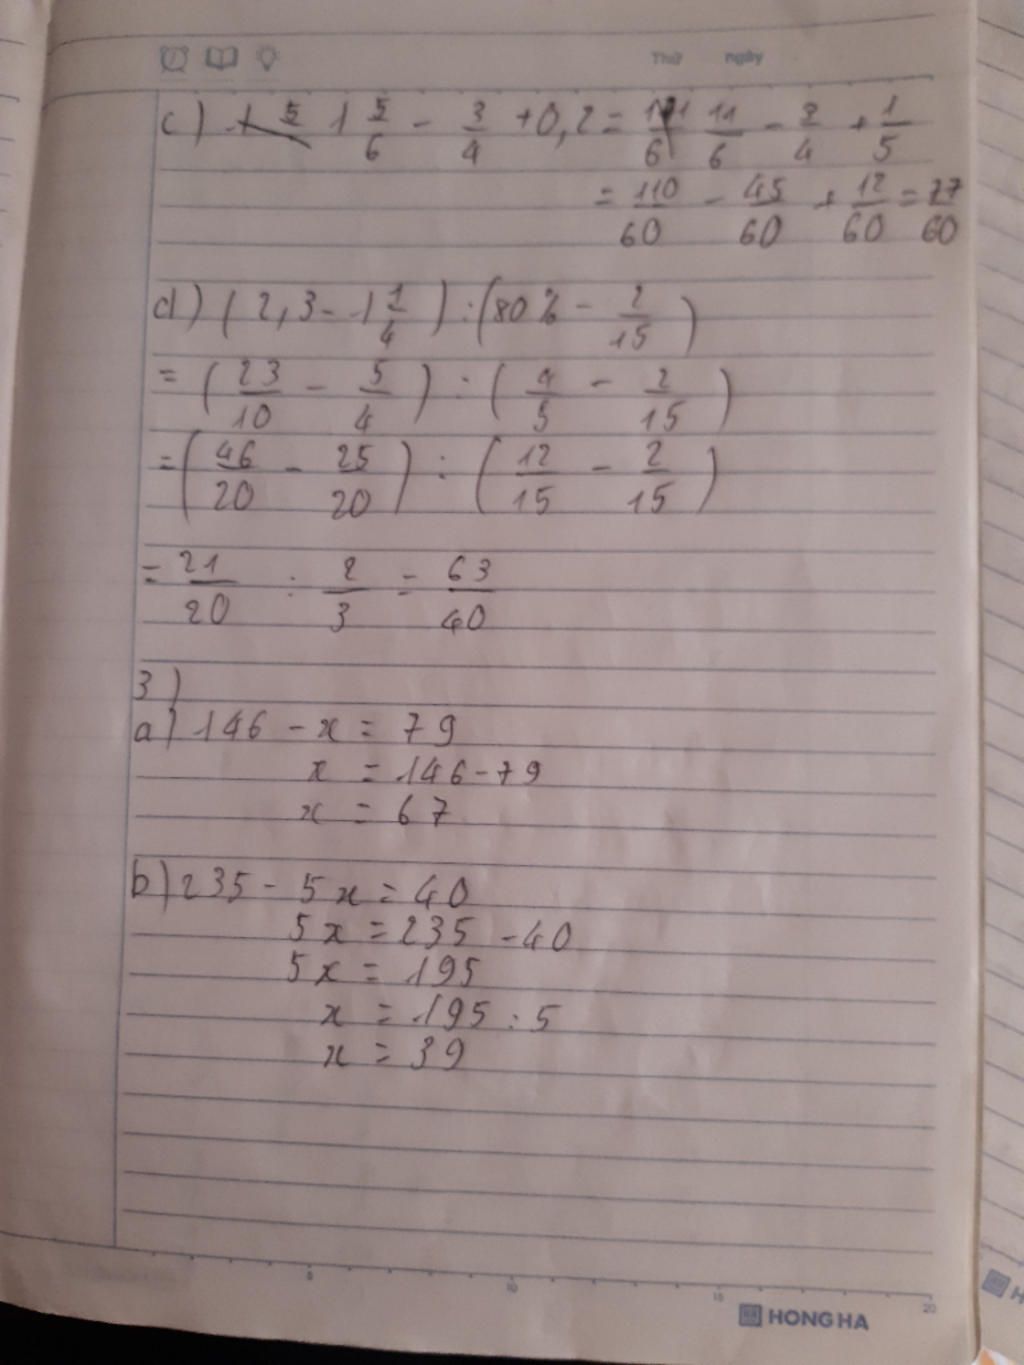 Thứ ngày
c) 1 5/6 - 3/4 + 0,2 = 11/6 - 3/4 + 1/5
= 110/60 - 45/60 + 12/60 = 77/60
d) (2,3 - 1 1/4) : (80% - 2/15)
= (23/10 - 5/4) : (4/5 - 2/15)
= (46/20 - 25/20) : (12/15 - 2/15)
= 21/20 : 2/3 = 63/40
3)
a) 146 - x = 79
x = 146 - 79
x = 67
b) 235 - 5x = 40
5x = 235 - 40
5x = 195
x = 195 : 5
x = 39
5 10 15 20
HONG HA
H